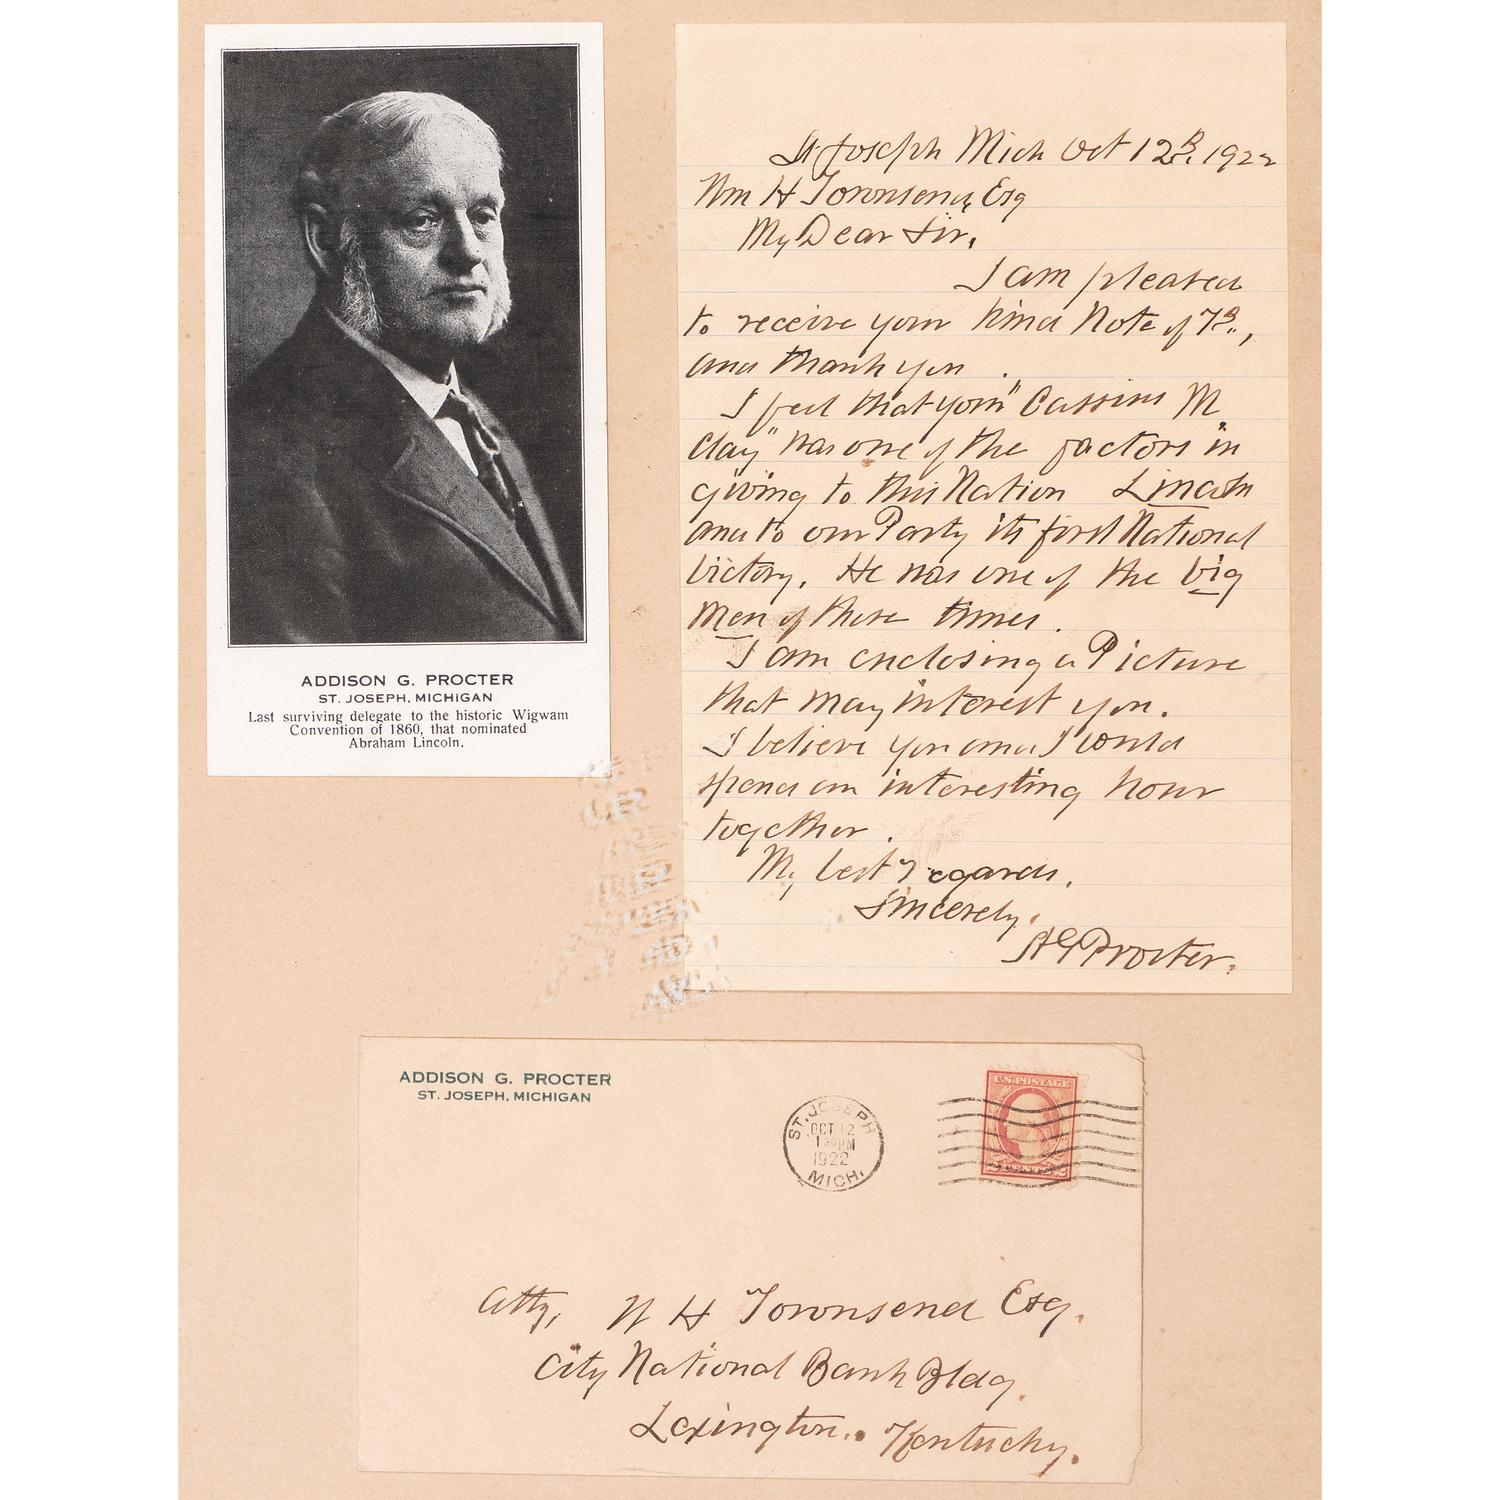 ADDISON G. PROCTER
ST. JOSEPH, MICHIGAN
Last surviving delegate to the historic Wigwam
Convention of 1860, that nominated
Abraham Lincoln.
St Joseph Mich Oct 12th. 1922
Wm H Townsend, Esq
My Dear Sir,
I am pleased
to receive your kind Note of 7th.,
and thank you .
I feel that your "Cassius M
Clay" was one of the factors in
giving to this Nation Lincoln
and to our Party its first National
Victory. He was one of the big
men of those times.
I am enclosing a Picture
that may interest you.
I believe you and I could
spend an interesting hour
together .
My best regards.
Sincerely.
A G Procter.
ADDISON G. PROCTER
ST. JOSEPH, MICHIGAN
ST. JOSEPH
OCT 12
1 30 PM
1922
MICH.
U.S. POSTAGE
Atty, W H Townsend Esq.
City National Bank Bldg.
Lexington.. Kentucky.